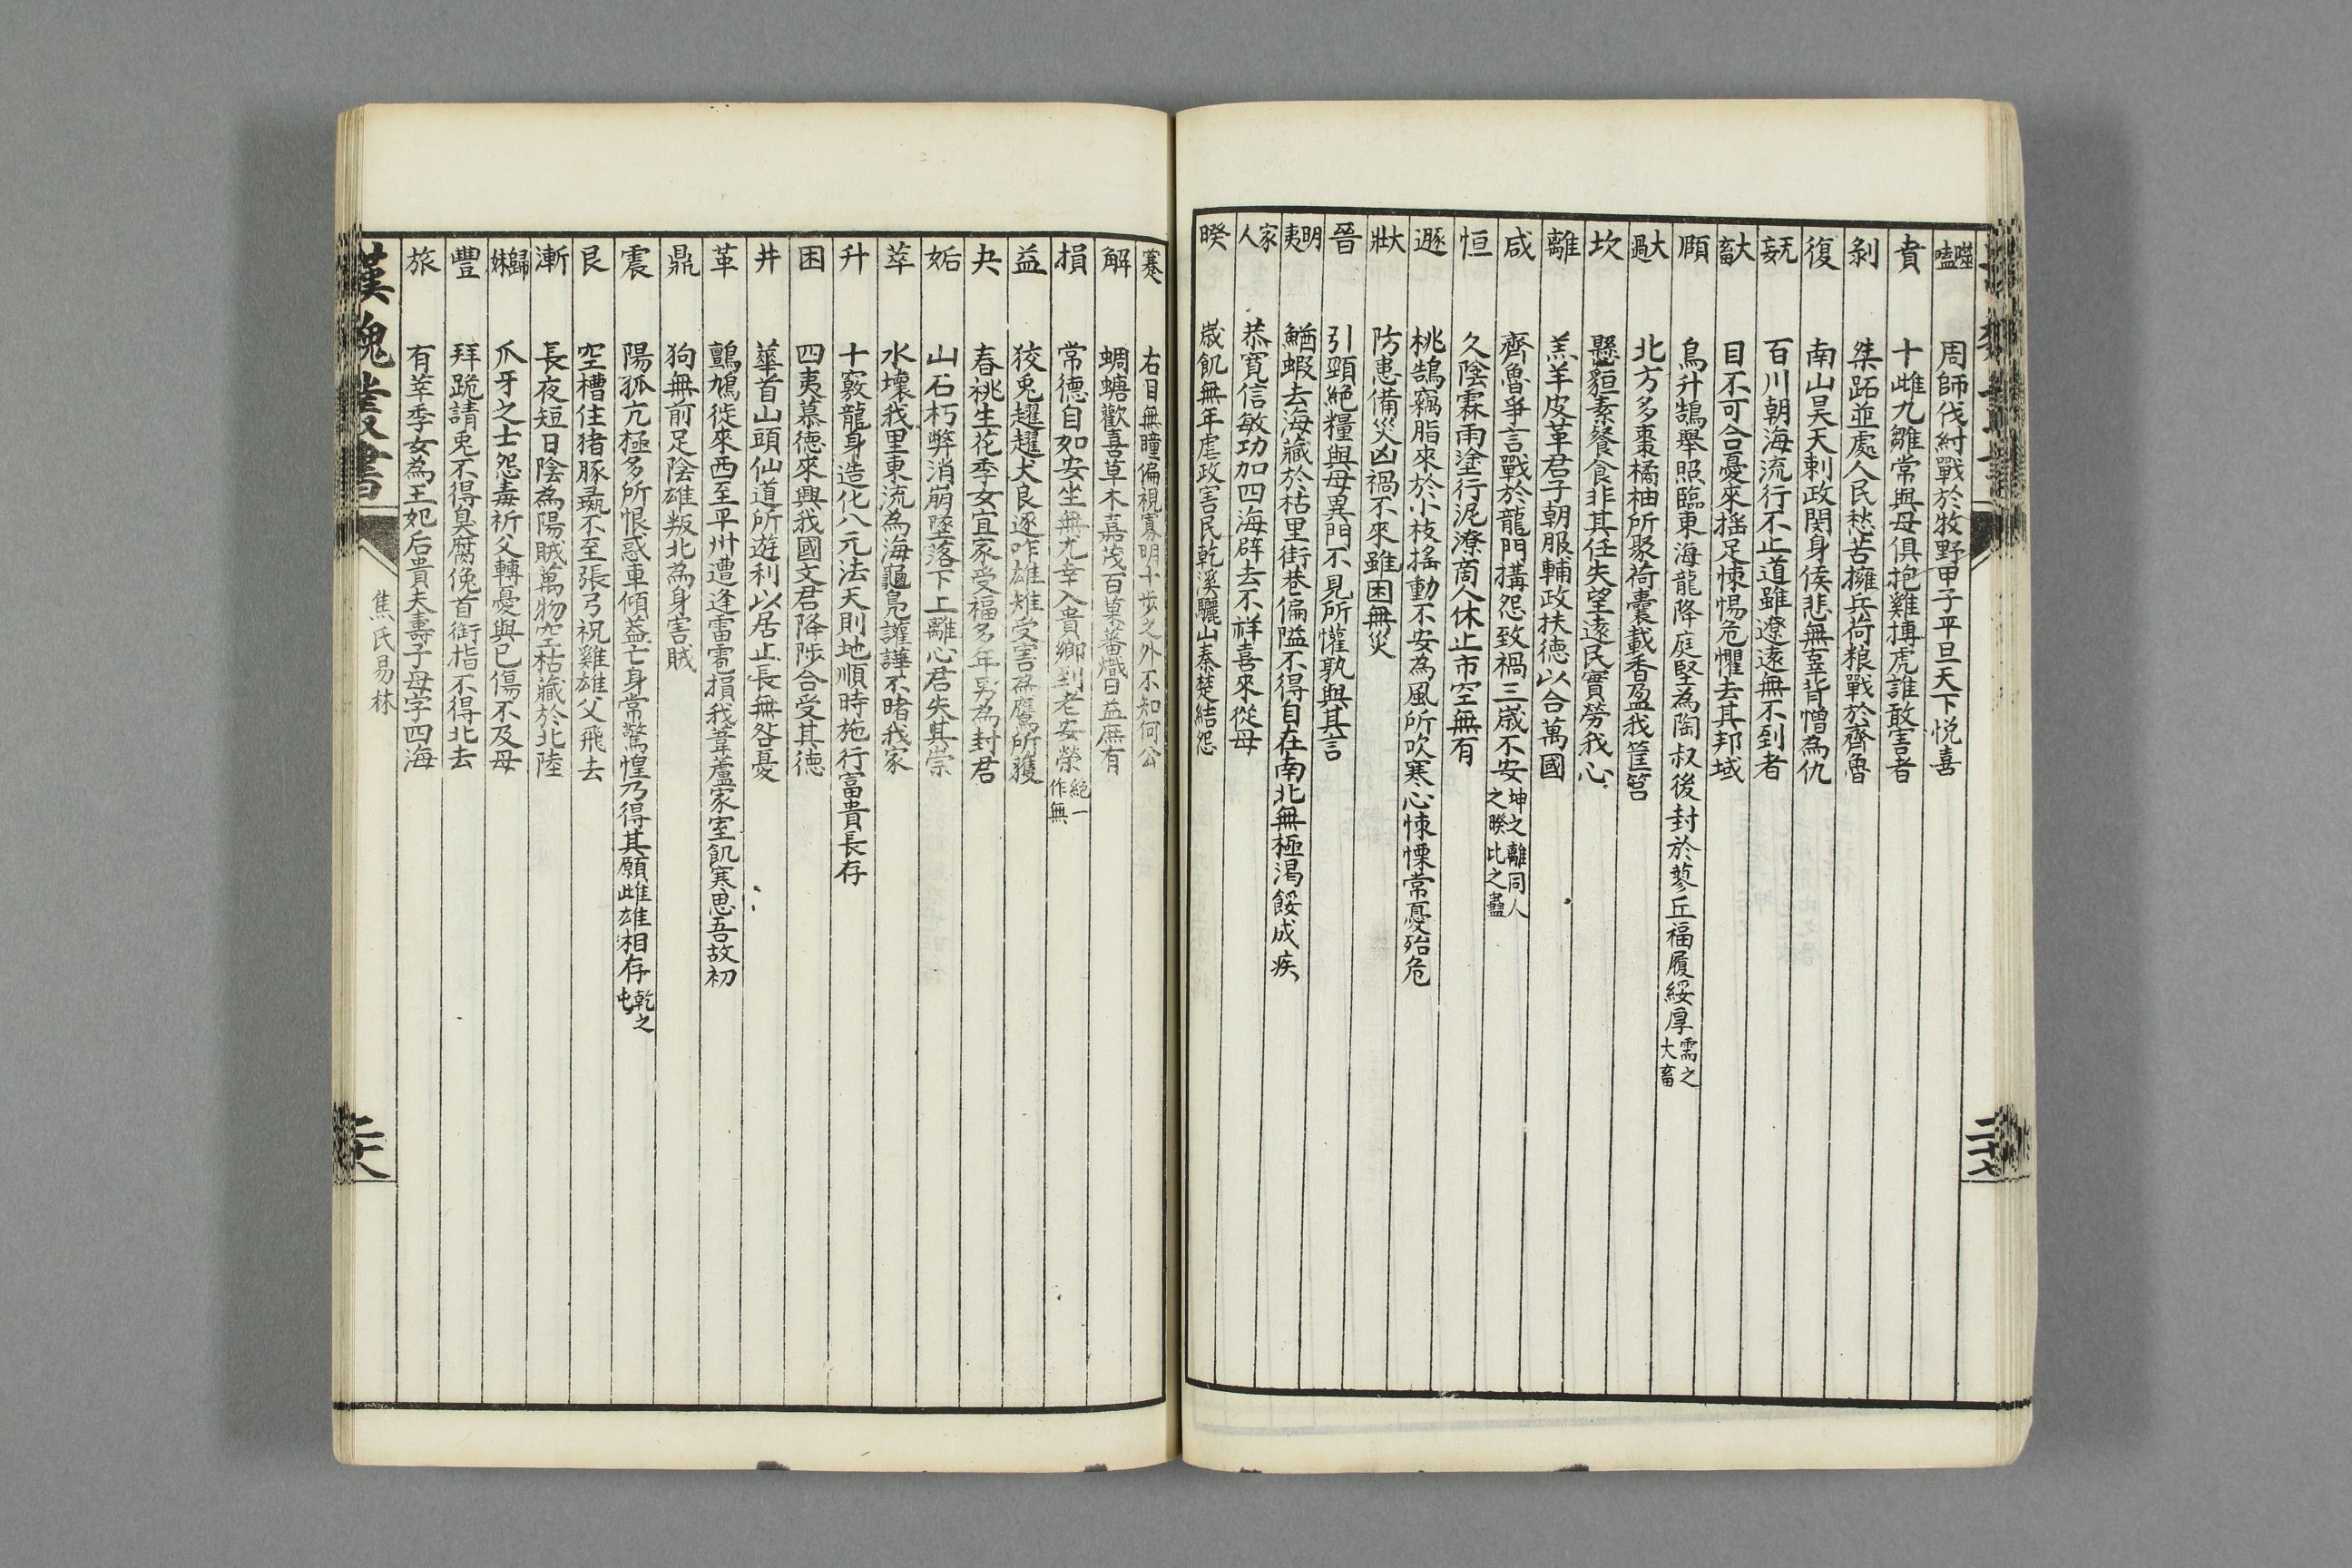 噬嗑 周師伐紂戰於牧野甲子平旦天下悅喜
賁 十雌九雛常與母俱抱雞搏虎誰敢害者
剝 桀跖並處人民愁苦擁兵荷粮戰於齊魯
復 南山昊天刺政閔身疾悲無辜背憎為仇
无妄 百川朝海流行不止道雖遼遠無不到者
大畜 目不可合憂來搖足悚惕危懼去其邦域
頤 烏升鵠舉照臨東海龍降庭堅為陶叔後封於蓼丘福履綏厚 需之大畜
大過 北方多棗橘柚所聚荷囊載香盈我筐筥
坎 懸貆素餐食非其任失望遠民實勞我心
離 羔羊皮革君子朝服輔政扶德以合萬國
咸 齊魯爭言戰於龍門搆怨致禍三歲不安 坤之離同人之睽比之蠱
恒 久陰霖雨塗行泥潦商人休止市空無有
遯 桃鵠竊脂來於小枝搖動不安為風所吹寒心悚慄常憂殆危
大壯 防患備災凶禍不來雖困無災
晉 引頸絕糧與母異門不見所懽孰與其言
明夷 鰌蝦去海藏於枯里街巷偏隘不得自在南北無極渴餒成疾
家人 恭寬信敏功加四海辟去不祥喜來從母
睽 歲飢無年虐政害民乾溪驪山秦楚結怨
蹇 右目無瞳偏視寡明十步之外不知何公
解 蜩螗歡喜草木嘉茂百菓蕃熾日益庶有
損 常德自如安坐無尤幸入貴鄉到老安榮 絕一作無
益 狡兔趯趯犬良逐咋雄雉受害為鷹所獲
夬 春桃生花季女宜家受福多年男為封君
姤 山石朽弊消崩墜落下上離心君失其崇
萃 水壞我里東流為海龜鳧讙譁不睹我家
升 十竅龍身造化八元法天則地順時施行富貴長存
困 四夷慕德來興我國文君降陟合受其德
井 華首山頭仙道所遊利以居止長無咎憂
革 鸇鳩徙來西至平州遭逢雷雹損我葦蘆家室飢寒思吾故初
鼎 狗無前足陰雄叛北為身害賊
震 陽孤亢極多所恨惑車傾蓋亡身常驚惶乃得其願雌雄相存 乾之屯
艮 空槽住猪豚彘不至張弓祝雞雄父飛去
漸 長夜短日陰為陽賊萬物空枯藏於北陸
歸妹 爪牙之士怨毒祈父轉憂與己傷不及母
豐 拜跪請兎不得臭腐俛首銜指不得北去
旅 有莘季女為王妃后貴夫壽子母字四海
漢魏叢書 焦氏易林 二十八
二十七